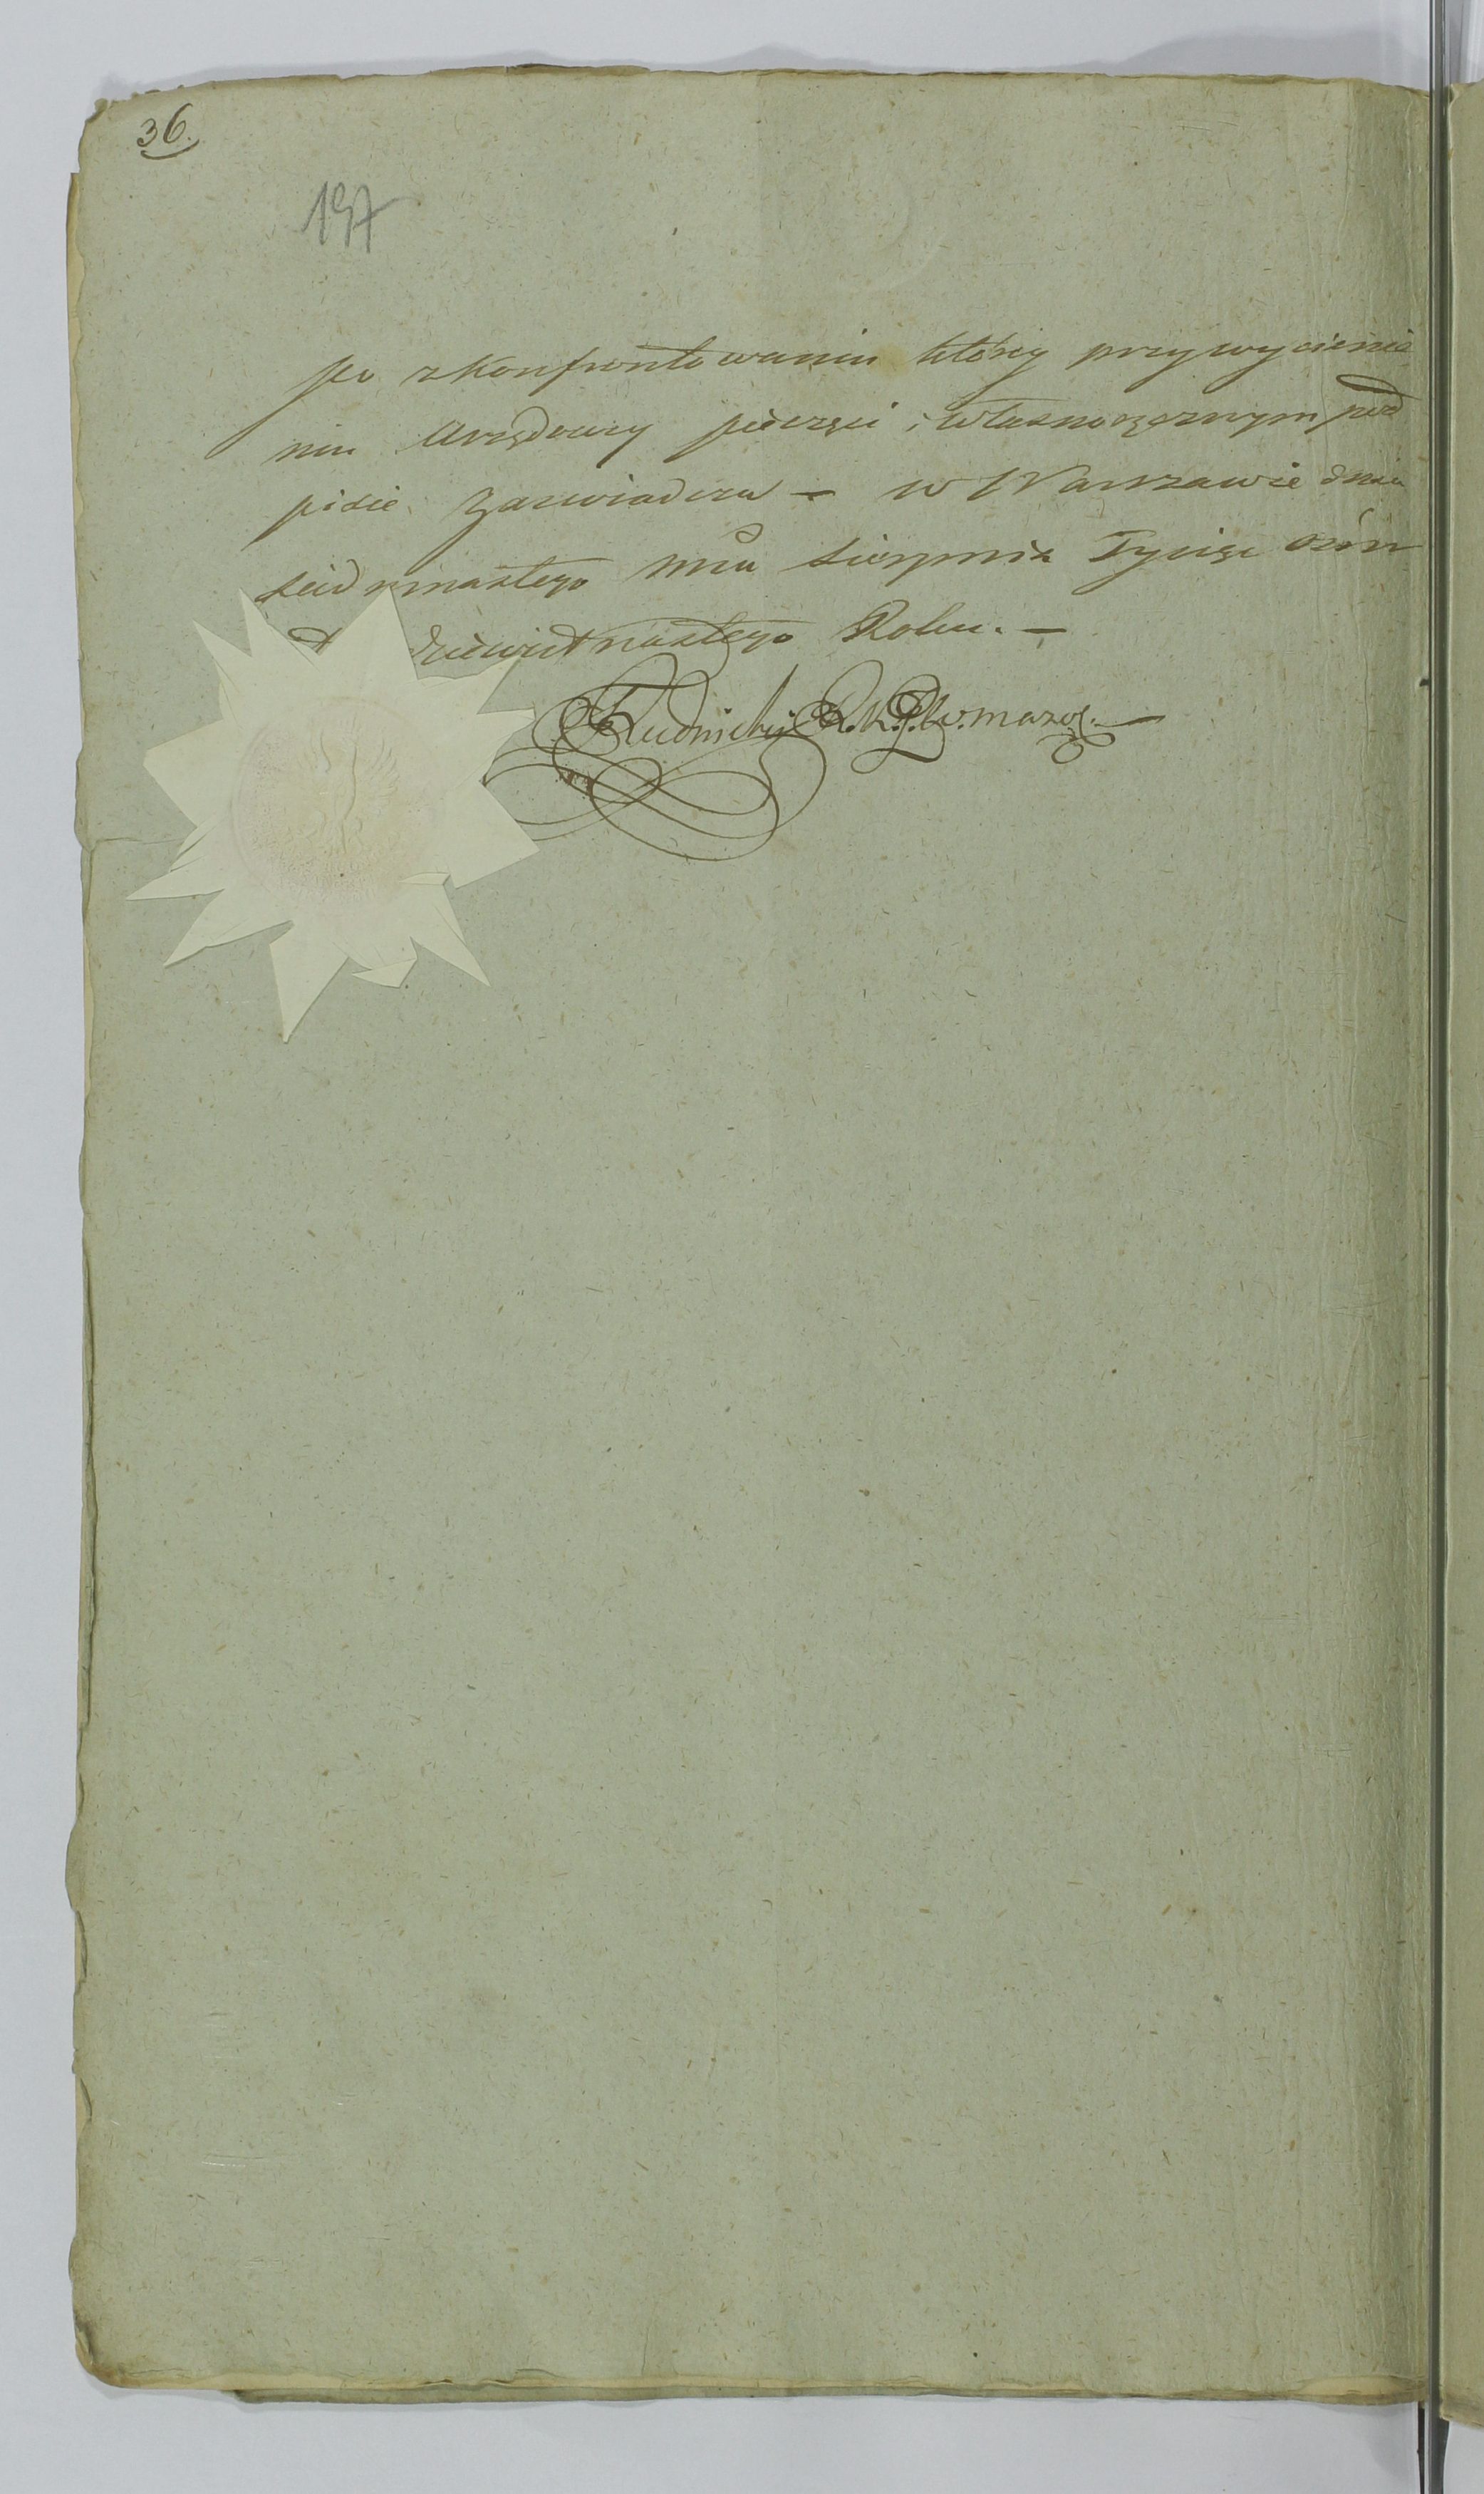 36.
197
po zkonfrontowaniu któréy przywyciśnie
niu Urzędowéy pieczęci i własnoręcznym pod
pisie zaświadcza — w Warszawie dnia
siedmnastego mca Sierpnia Tysiąc osim
dziewiętnastego Roku. —
Rudnicki R.K.P.W. mazo. —